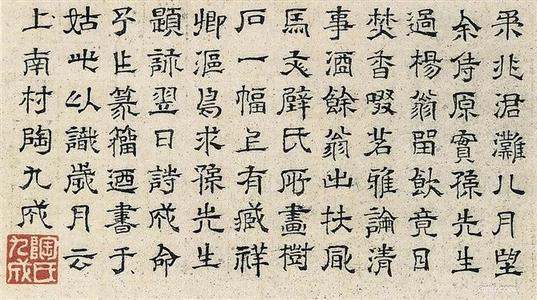 柔兆君灘八月望
余侍原實孫先生
過楊翁留飲竟日
焚香啜茗雅論清
事酒餘翁出扶風
馬文璧氏所畫樹
石一幅上有臧祥
卿漚鳥求孫先生
題詠翌日詩成命
予作篆籀迺書于
姑此以識歲月云
上南村陶九成
陶氏九成